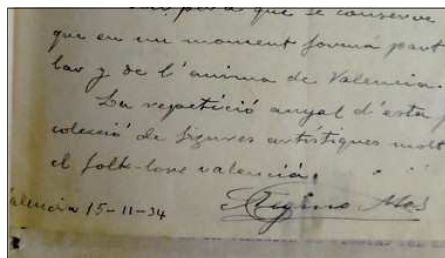 per a que se conserve
que en un moment formá part
lar y de l'anima de Valencia.
La repetició anyal d'esta
colecció de figures artístiques molt
el folk-lore valenciá.
alencia 15-11-34 Eugeno Mas